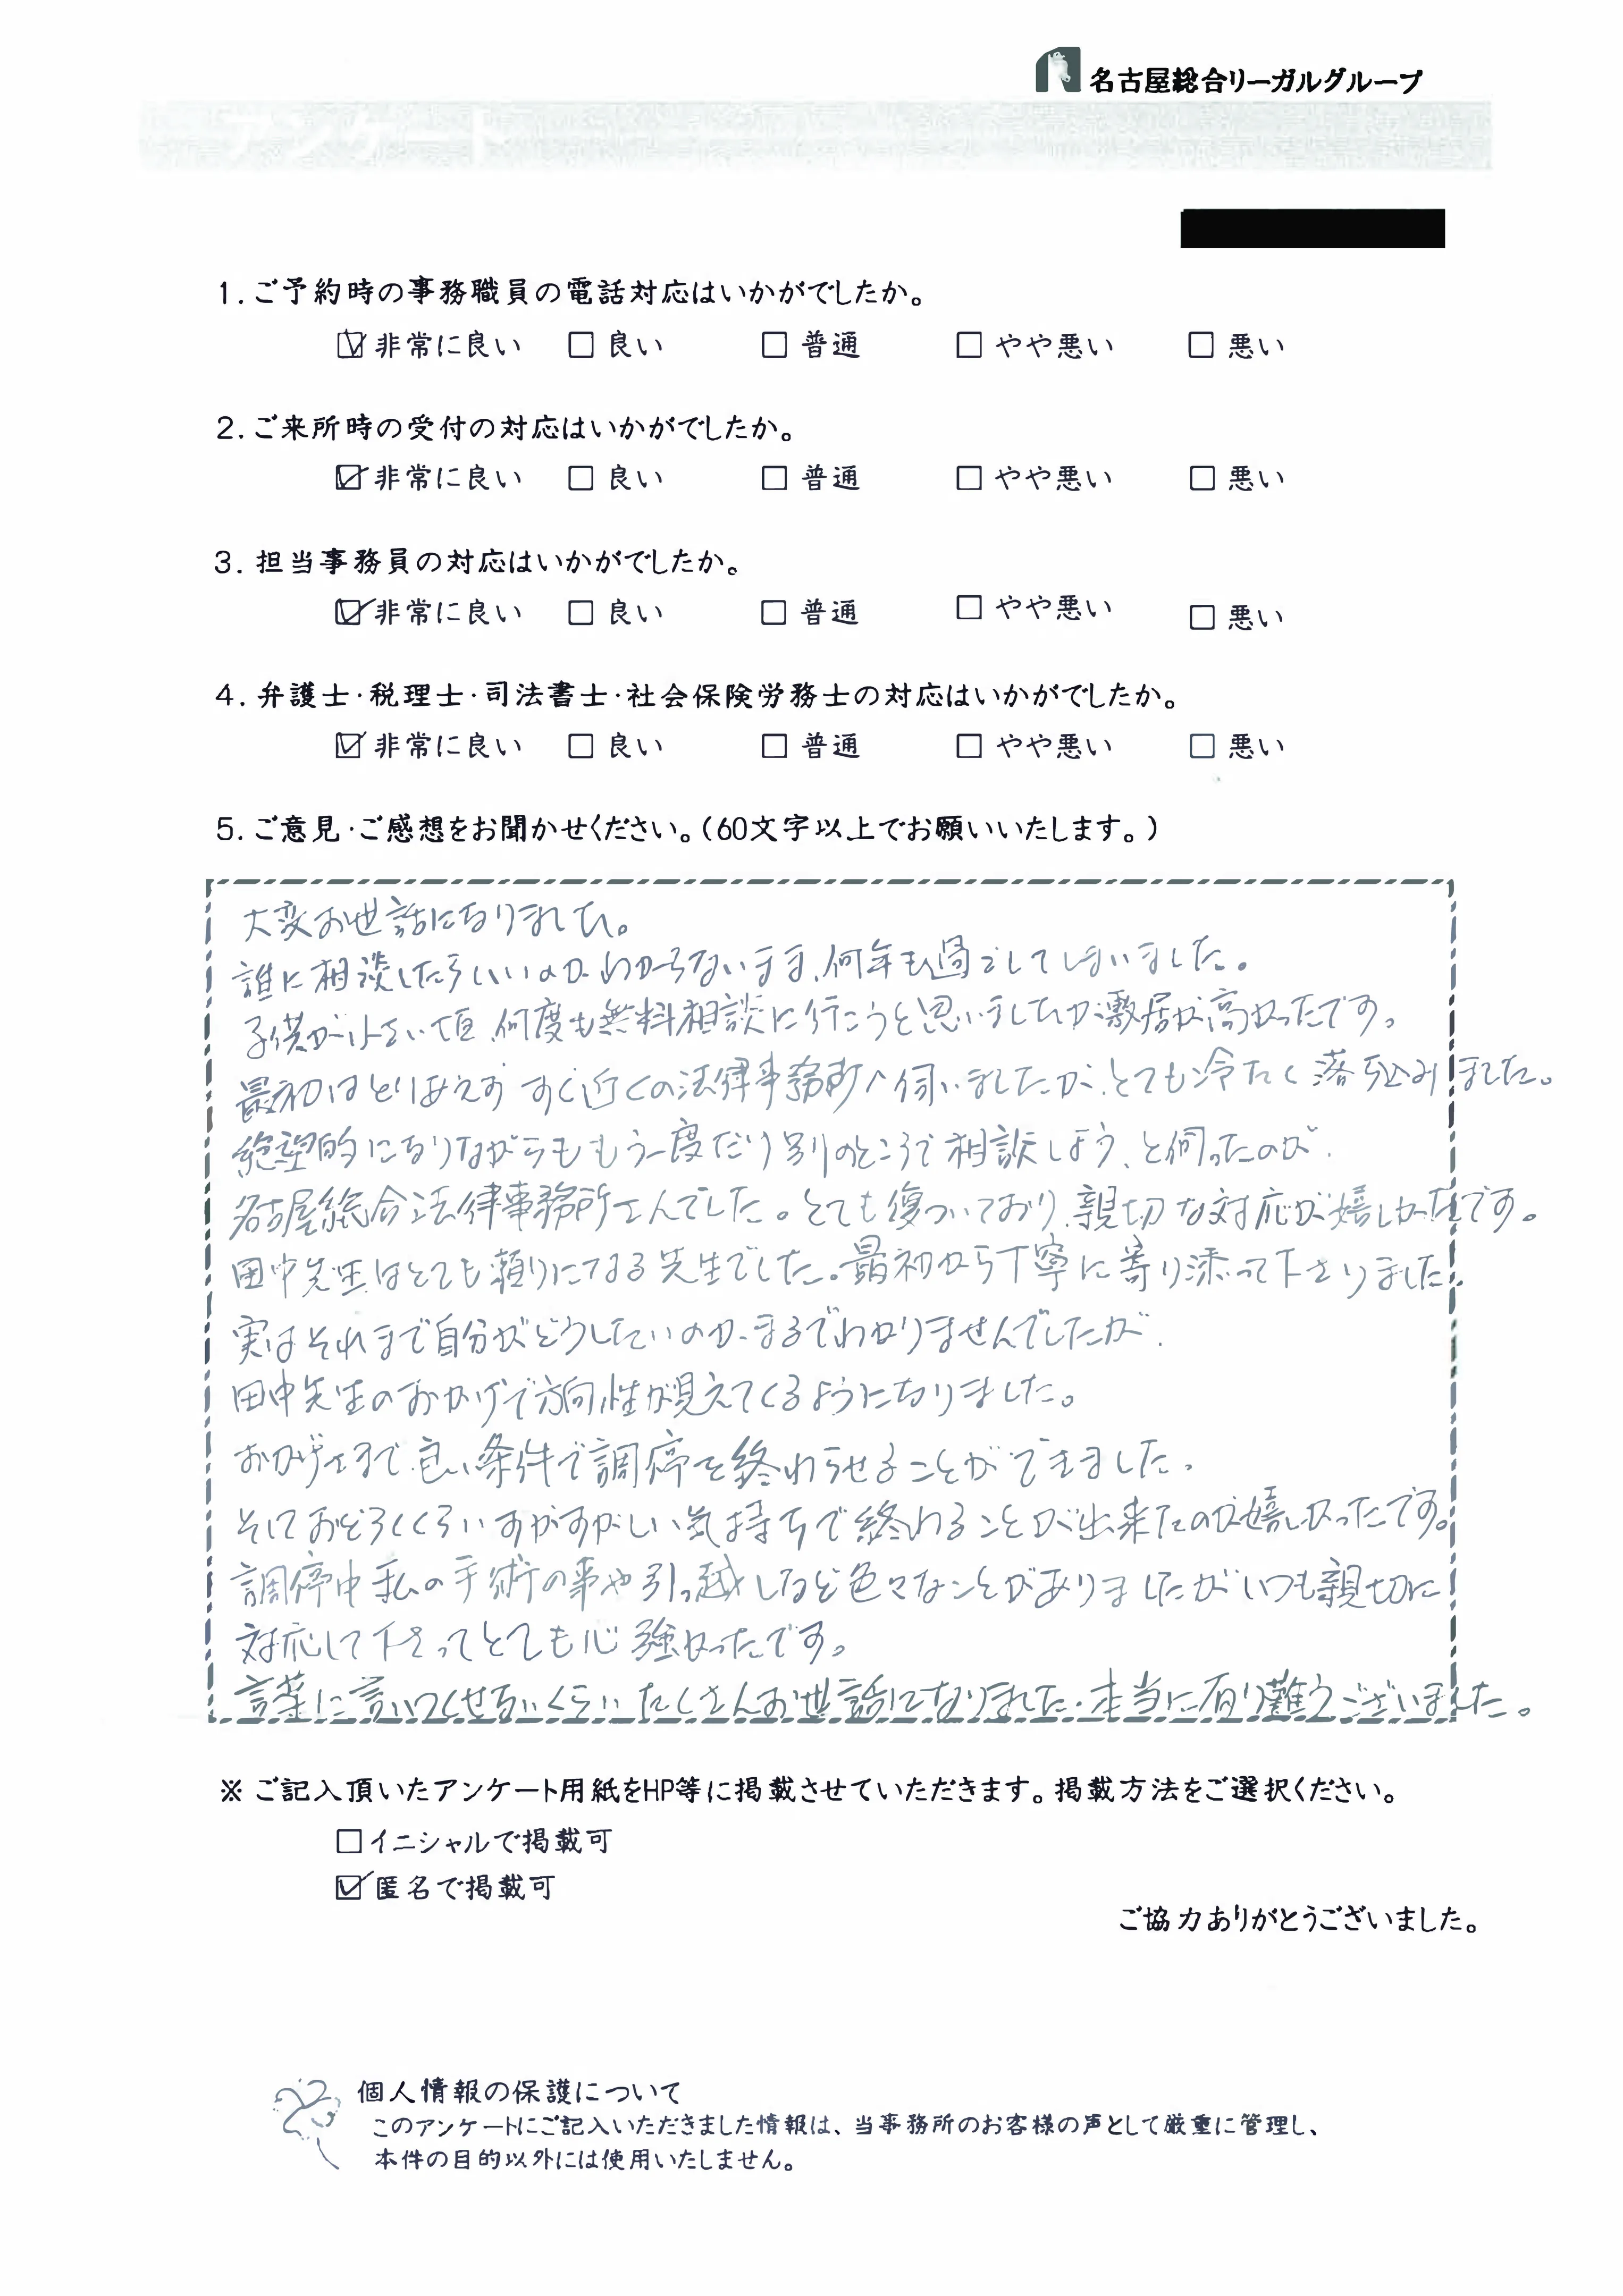 名古屋総合リーガルグループ
アンケート
1. ご予約時の事務職員の電話対応はいかがでしたか。
☑ 非常に良い □ 良い □ 普通 □ やや悪い □ 悪い
2. ご来所時の受付の対応はいかがでしたか。
☑ 非常に良い □ 良い □ 普通 □ やや悪い □ 悪い
3. 担当事務員の対応はいかがでしたか。
☑ 非常に良い □ 良い □ 普通 □ やや悪い □ 悪い
4. 弁護士・税理士・司法書士・社会保険労務士の対応はいかがでしたか。
☑ 非常に良い □ 良い □ 普通 □ やや悪い □ 悪い
5. ご意見・ご感想をお聞かせください。(60文字以上でお願いいたします。)
大変お世話になりました。
誰に相談したらいいのかわからないまま、何年も過ごしてしまいました。
子供が小さい頃、何度も無料相談に行こうと思いましたが敷居が高かったです。
最初はとりあえずすぐ近くの法律事務所へ伺いましたが、とても冷たく落ち込みました。
絶望的になりながらももう一度だけ別のところで相談しよう、と伺ったのが、
名古屋総合法律事務所さんでした。とても傷ついており、親切な対応が嬉しかったです。
田中先生はとても頼りになる先生でした。最初から丁寧に寄り添って下さりました。
実はそれまで自分がどうしたいのか、まるでわかりませんでしたが、
田中先生のおかげで方向性が見えてくるようになりました。
おかげさまで、良い条件で調停を終わらせることができました。
そしておどろくくらいすがすがしい気持ちで終わることが出来たのが嬉しかったです。
調停中私の手術の事や引っ越しなど色々なことがありましたがいつも親切に
対応して下さってとても心強かったです。
言葉に言いつくせないくらいたくさんお世話になりました。本当に有り難うございました。
※ ご記入頂いたアンケート用紙をHP等に掲載させていただきます。掲載方法をご選択ください。
□ イニシャルで掲載可
☑ 匿名で掲載可
ご協力ありがとうございました。
個人情報の保護について
このアンケートにご記入いただきました情報は、当事務所のお客様の声として厳重に管理し、
本件の目的以外には使用いたしません。